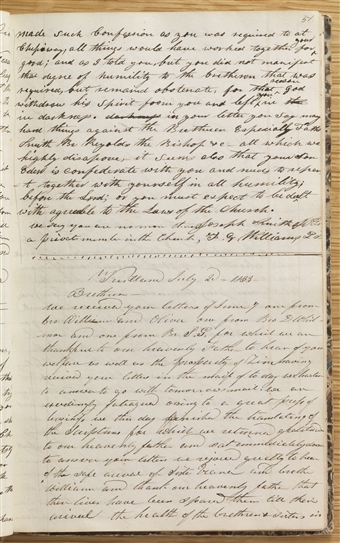 51
made such Confession as you was required to at
Chipeway, all things would have worked together for your
good; and as I told you, but you did not manifest
that degree of humility to the Bretheren that was
required, but remained obstenate, for that reason God
withdrew his Spirit from you and left you
in darkness. in your letter you say many
hard things against the Bretheren Especialy
Smith Br Reynolds the Bishop &c all which we
highly disaprove, it seems also that your Son
Edest is confederate with you and needs to repe
nt together with yourself in all humility,
before the Lord; or you must expect to be dealt
with agreable to the Laws of the Church.
we say you are no more than
a privat member in the Church, F. G. Williams
Kirtland July 2 1833
Bretheren
We received your letters of June 7 one from
bro William and Oliver one from Bro D Whit
mer and one from Br S. G. for which we are
thankful to our heavenly Father to hear of your
welfare as well as the prosperity of Zion having
received your letters in the mail of to day we hasten
to answer to go with tomorrows mail we are
exceedingly fatigued owing to a great press of
business we this day finished the translating of
the Scriptures for which we returned gratitude
to our heavenly father and sat immediately down
to answer your letters we rejoice greatly to hear
of the safe arival of Sister and broth
William and thank our heavenly father that
their lives have been spared them till their
arival the health of the brethren & Sisters in